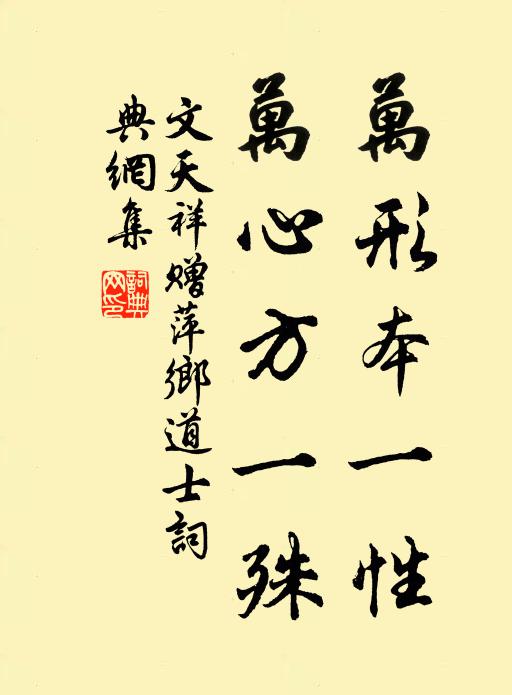 萬形本一性
萬心方一殊
文天祥贈萍鄉道士詞
典網集
詞典
网印